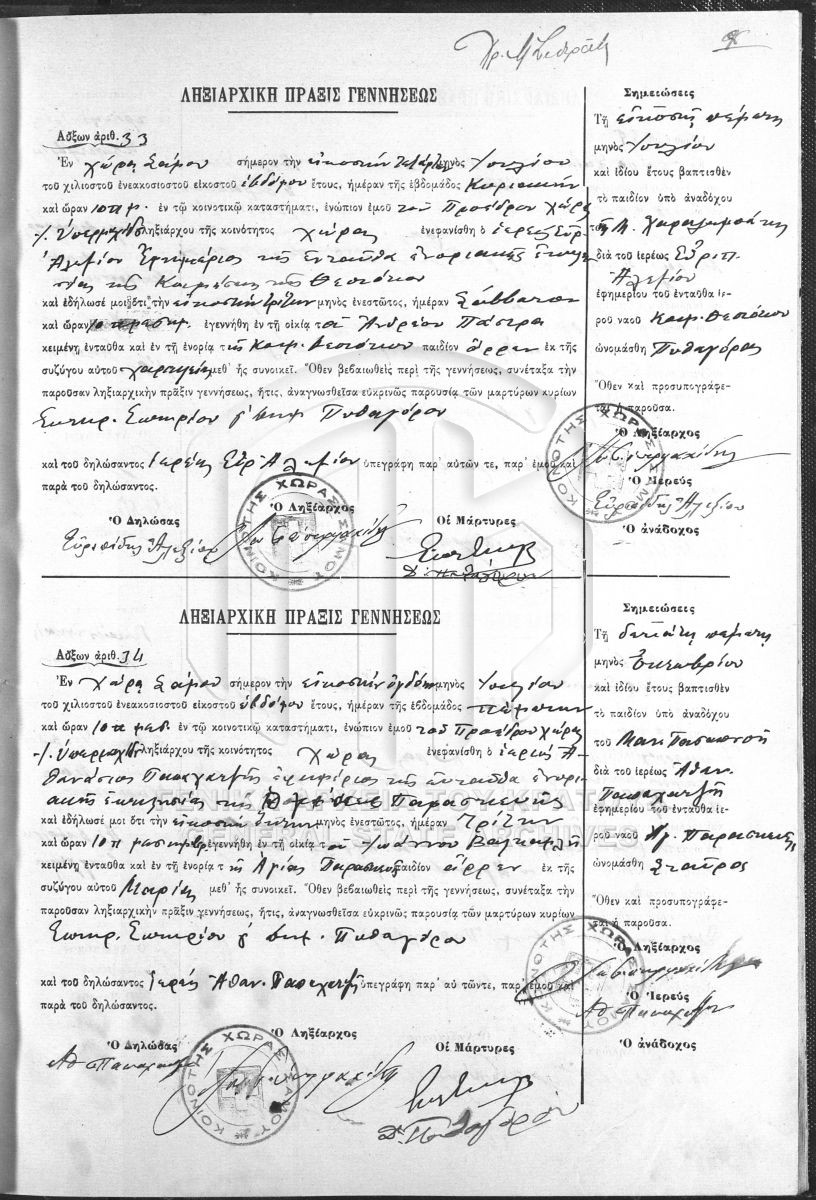 ΛΗΞΙΑΡΧΙΚΗ ΠΡΑΞΙΣ ΓΕΝΝΗΣΕΩΣ
Αὔξων ἀριθ. 33
Ἐν Χώρᾳ Σάμου σήμερον τὴν εἰκοστὴν τετάρτην μηνὸς Ἰουλίου
τοῦ χιλιοστοῦ ἐνεακοσιοστοῦ εἰκοστοῦ ἑβδόμου ἔτους, ἡμέραν τῆς ἑβδομάδος Κυριακὴν
καὶ ὥραν 10 π.μ. ἐν τῷ κοινοτικῷ καταστήματι, ἐνώπιον ἐμοῦ τοῦ Προέδρου Χώρας
ληξιάρχου τῆς κοινότητος Χώρας ἐνεφανίσθη ὁ ἱερεὺς Εὐρ.
Ἀλεξίου Ἐφημέριος τῆς ἐνταῦθα ἐνοριακῆς ἐκκλη
σίας τῆς Κοιμήσεως τῆς Θεοτόκου
καὶ ἐδήλωσέ μοι ὅτι τὴν εἰκοστὴν τρίτην μηνὸς ἐνεστῶτος, ἡμέραν Σάββατον
καὶ ὥραν 10 ἐγεννήθη ἐν τῇ οἰκίᾳ τοῦ Ἀνδρέου
κειμένῃ ἐνταῦθα καὶ ἐν τῇ ἐνορίᾳ τῆς Κοιμ. Θεοτόκου παιδίον ἄρρεν ἐκ τῆς
συζύγου αὐτοῦ μεθ' ἧς συνοικεῖ. Ὅθεν βεβαιωθεὶς περὶ τῆς γεννήσεως, συνέταξα τὴν
παροῦσαν ληξιαρχικὴν πρᾶξιν γεννήσεως, ἥτις, ἀναγνωσθεῖσα εὐκρινῶς παρουσίᾳ τῶν μαρτύρων κυρίων
Σωτηρ. Σωτηρίου Πυθαγόρου
καὶ τοῦ δηλώσαντος Ἱερέως Εὐρ. Ἀλεξίου ὑπεγράφη παρ' αὐτῶν τε, παρ' ἐμοῦ καὶ
παρὰ τοῦ δηλώσαντος.
Ὁ Δηλώσας Ὁ Ληξίαρχος Οἱ Μάρτυρες
Εὐριπίδης Ἀλεξίου
ΚΟΙΝΟΤΗΣ ΧΩΡΑΣ ΣΑΜΟΥ
Σημειώσεις
Τῇ εἰκοστῇ πέμπτῃ
μηνὸς Ἰουλίου
καὶ ἰδίου ἔτους βαπτισθὲν
τὸ παιδίον ὑπὸ ἀναδόχου
διὰ τοῦ ἱερέως Εὐριπ.
Ἀλεξίου
ἐφημερίου τοῦ ἐνταῦθα ἱε-
ροῦ ναοῦ Κοιμ. Θεοτόκου
ὠνομάσθη Πυθαγόρας
Ὅθεν καὶ προσυπογράφε-
ται ἡ παροῦσα.
Ὁ Ληξίαρχος
Ὁ Ἱερεὺς
Εὐριπίδης Ἀλεξίου
Ὁ ἀνάδοχος
ΚΟΙΝΟΤΗΣ ΧΩΡΑΣ ΣΑΜΟΥ
ΛΗΞΙΑΡΧΙΚΗ ΠΡΑΞΙΣ ΓΕΝΝΗΣΕΩΣ
Αὔξων ἀριθ. 34
Ἐν Χώρᾳ Σάμου σήμερον τὴν εἰκοστὴν ὀγδόην μηνὸς Ἰουλίου
τοῦ χιλιοστοῦ ἐνεακοσιοστοῦ εἰκοστοῦ ἑβδόμου ἔτους, ἡμέραν τῆς ἑβδομάδος Πέμπτην
καὶ ὥραν 10 π. μεσ. ἐν τῷ κοινοτικῷ καταστήματι, ἐνώπιον ἐμοῦ τοῦ Προέδρου Χώρας
ληξιάρχου τῆς κοινότητος Χώρας ἐνεφανίσθη ὁ ἱερεὺς Ἀ
θανάσιος Παπαχατζῆς ἐφημέριος τῆς ἐνταῦθα ἐνορι
ακῆς ἐκκλησίας τῆς Παρασκευῆς
καὶ ἐδήλωσέ μοι ὅτι τὴν εἰκοστὴν ἕκτην μηνὸς ἐνεστῶτος, ἡμέραν Τρίτην
καὶ ὥραν 10 ἐγεννήθη ἐν τῇ οἰκίᾳ τοῦ Ἰωάννου
κειμένῃ ἐνταῦθα καὶ ἐν τῇ ἐνορίᾳ τῆς Ἁγίας Παρασκευῆς παιδίον ἄρρεν ἐκ τῆς
συζύγου αὐτοῦ Μαρίας μεθ' ἧς συνοικεῖ. Ὅθεν βεβαιωθεὶς περὶ τῆς γεννήσεως, συνέταξα τὴν
παροῦσαν ληξιαρχικὴν πρᾶξιν γεννήσεως, ἥτις, ἀναγνωσθεῖσα εὐκρινῶς παρουσίᾳ τῶν μαρτύρων κυρίων
Σωτηρ. Σωτηρίου Πυθαγόρου
καὶ τοῦ δηλώσαντος Ἱερέως Ἀθαν. Παπαχατζῆ ὑπεγράφη παρ' αὐτῶντε, παρ' ἐμοῦ καὶ
παρὰ τοῦ δηλώσαντος.
Ὁ Δηλώσας Ὁ Ληξίαρχος Οἱ Μάρτυρες
Δ. Πυθαγόρου
ΚΟΙΝΟΤΗΣ ΧΩΡΑΣ ΣΑΜΟΥ
Σημειώσεις
Τῇ δεκάτῃ πέμπτῃ
μηνὸς Ὀκτωβρίου
καὶ ἰδίου ἔτους βαπτισθὲν
τὸ παιδίον ὑπὸ ἀναδόχου
τοῦ
διὰ τοῦ ἱερέως Ἀθαν.
Παπαχατζῆ
ἐφημερίου τοῦ ἐνταῦθα ἱε-
ροῦ ναοῦ Ἁγ. Παρασκευῆς
ὠνομάσθη Σταῦρος
Ὅθεν καὶ προσυπογράφε-
ται ἡ παροῦσα.
Ὁ Ληξίαρχος
Ὁ Ἱερεὺς
Ὁ ἀνάδοχος
ΚΟΙΝΟΤΗΣ ΧΩΡΑΣ ΣΑΜΟΥ
ΓΕΝΙΚΑ ΑΡΧΕΙΑ ΤΟΥ ΚΡΑΤΟΥΣ
GENERAL STATE ARCHIVES